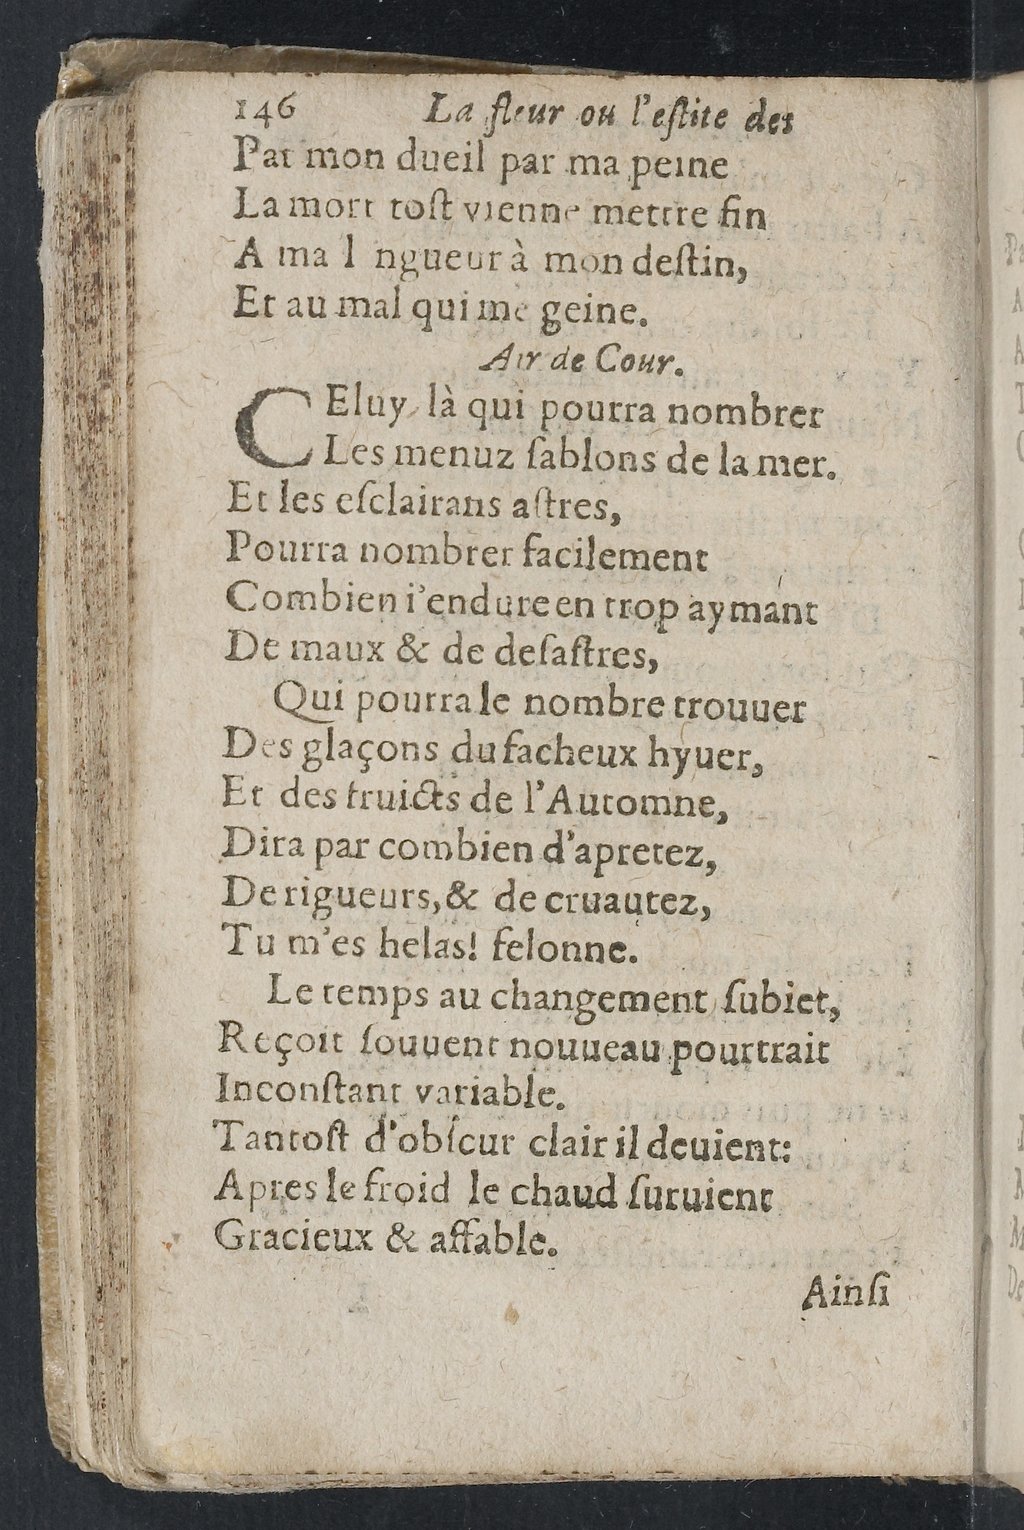 146 La fleur ou l'eſtite des
Par mon dueil par ma peine
La mort toſt vienne mettre fin
A ma l ngueur à mon deſtin,
Et au mal qui me geine.
Air de Cour.
CEluy là qui pourra nombrer
Les menuz ſablons de la mer.
Et les eſclairans aſtres,
Pourra nombrer facilement
Combien i'endure en trop aymant
De maux & de deſaſtres,
Qui pourra le nombre trouuer
Des glaçons du facheux hyuer,
Et des fruicts de l'Automne,
Dira par combien d'apretez,
De rigueurs, & de cruautez,
Tu m'es helas! felonne.
Le temps au changement ſubiet,
Reçoit ſouuent nouueau pourtrait
Inconſtant variable.
Tantoſt d'obſcur clair il deuient:
Apres le froid le chaud ſuruient
Gracieux & affable.
Ainſi